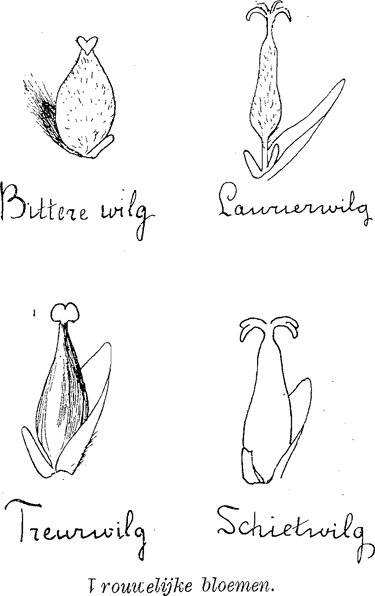 Bittere wilg
Laurierwilg
Treurwilg
Schietwilg
Vrouwelijke bloemen.